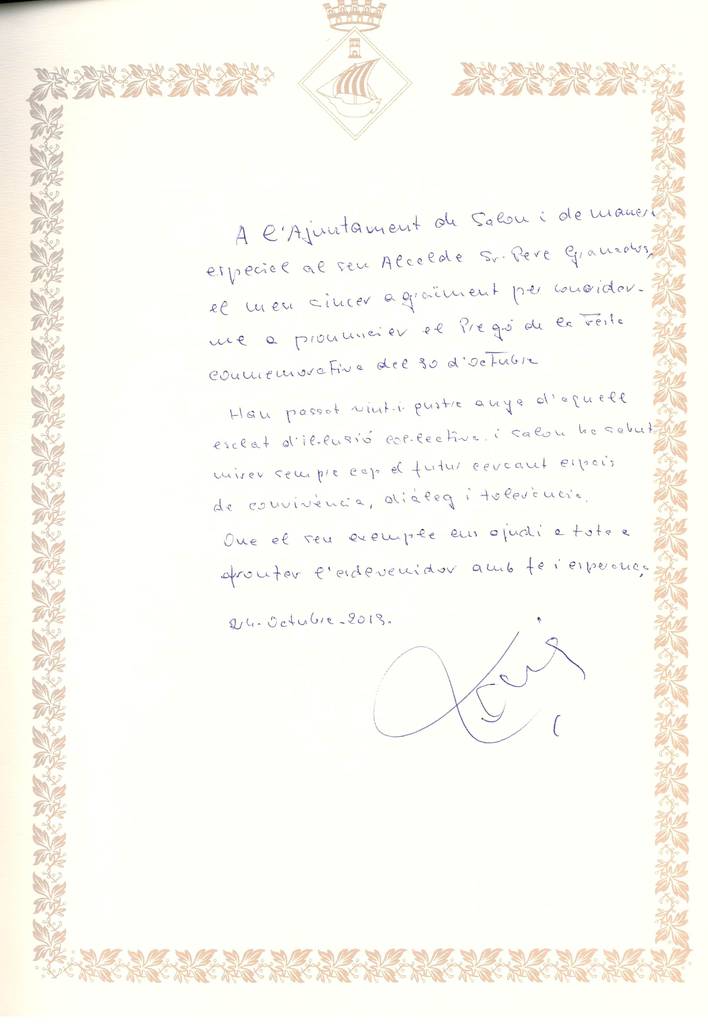 A l'Ajuntament de Salou i de manera
especial al seu Alcalde Sr. Pere Granados,
el meu sincer agraïment per considerar-
me a pronunciar el Pregó de la Festa
commemorativa del 30 d'octubre
Han passat vint-i-quatre anys d'aquell
esclat d'il·lusió col·lectiva i Salou ha sabut
mirar sempre cap al futur cercant espais
de convivència, diàleg i tolerància.
Que el seu exemple ens ajudi a tots a
afrontar l'esdevenidor amb fe i esperança
24-octubre-2013.